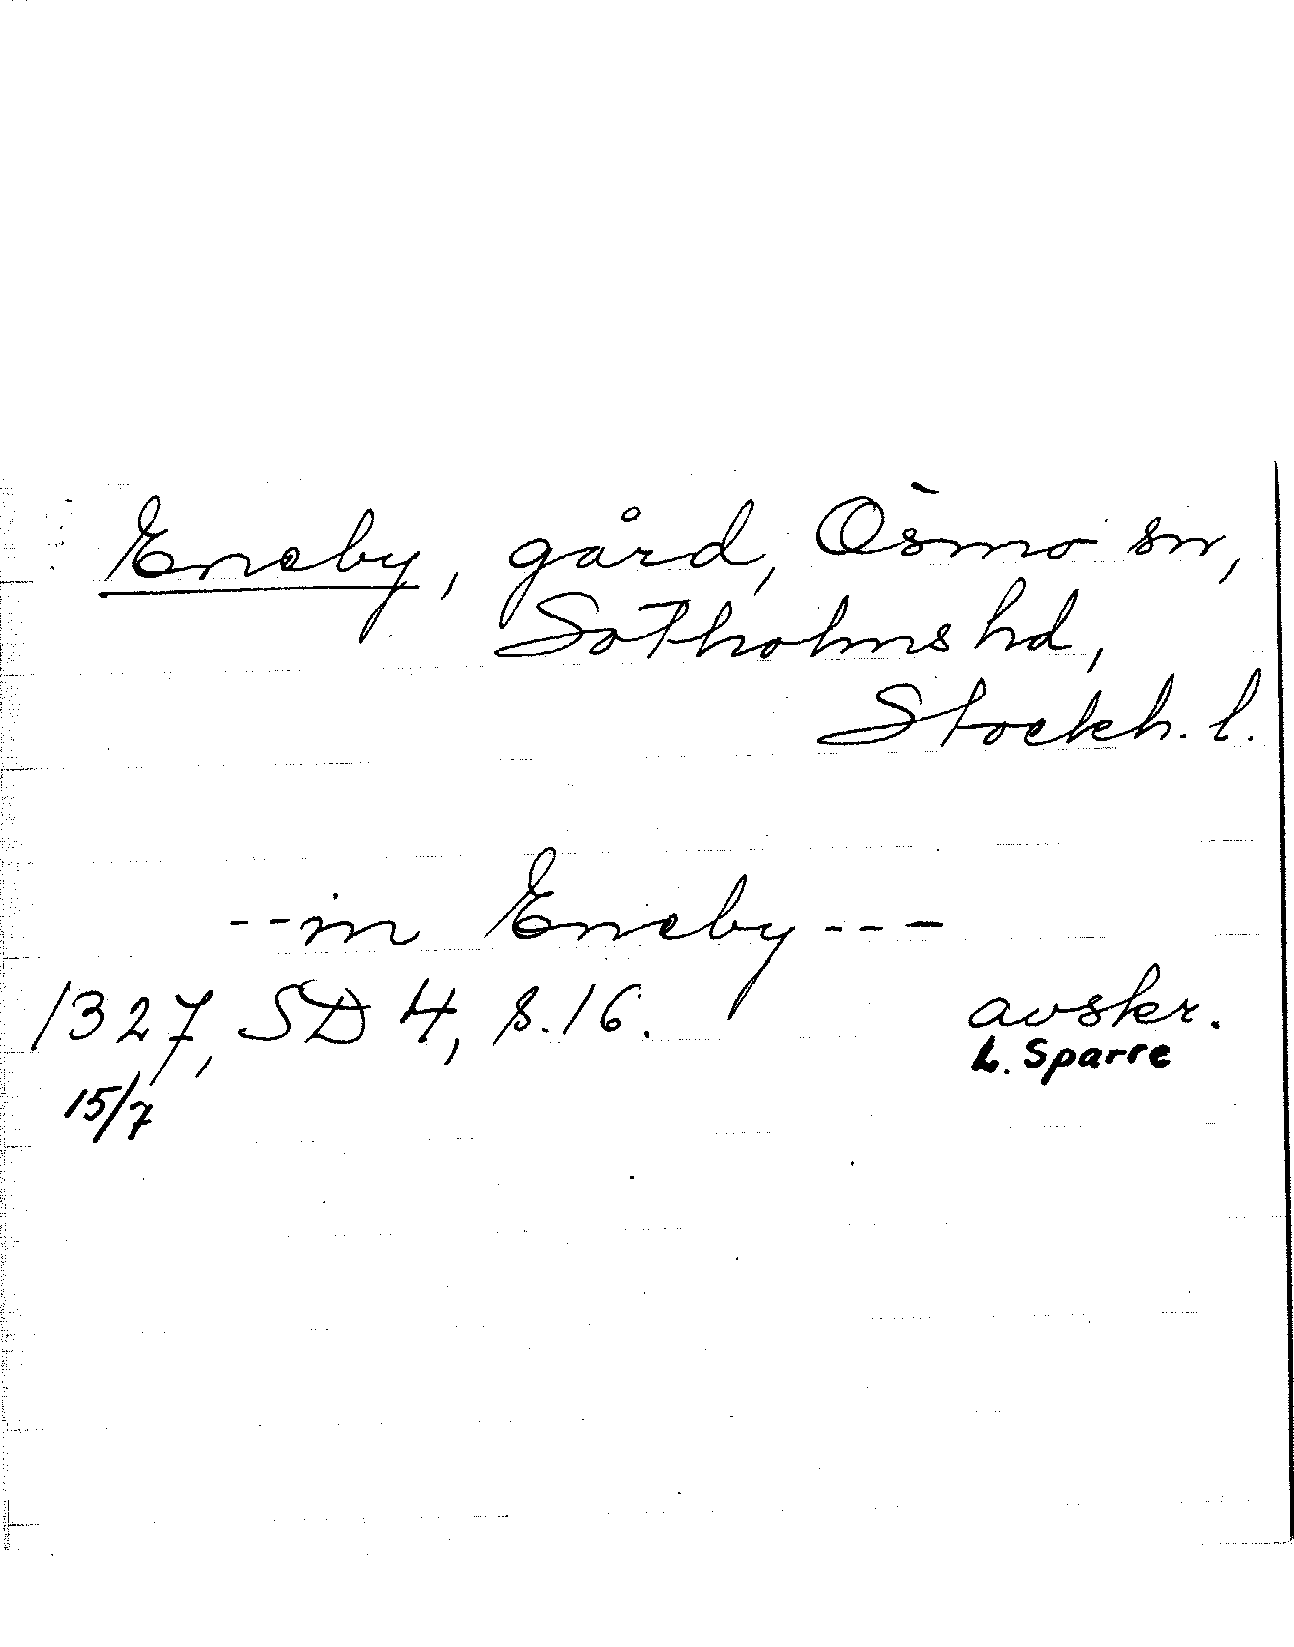 Eneby, gård, Ösmo sn,
Sotholms hd,
Stockh. l.
--in Eneby---
1327, SD 4, s. 16. avskr.
15/7 L. Sparre